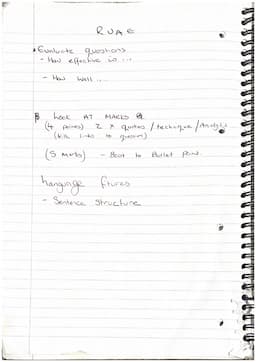 RUAE
Evaluate questions
- How effective is ...
- How well ...
Look AT MARKS
(4 marks) 2 x quotes / technique / Analysis
(link to question)
(5 marks) - Best to Bullet Point.
- Sentence Structure